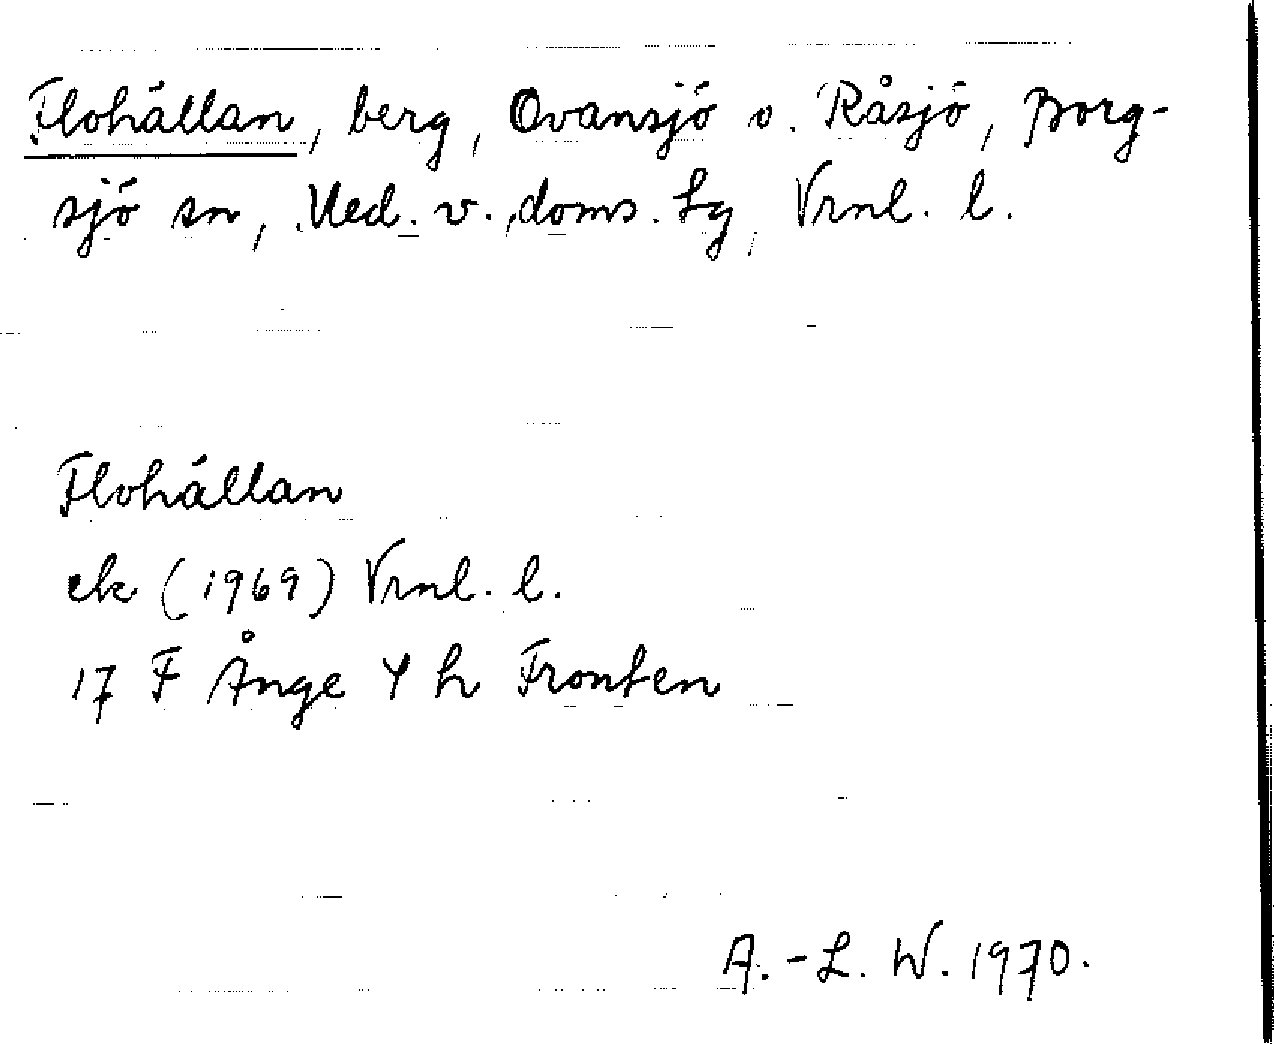 Flohällan, berg, Ovansjö o. Råsjö, Borg-
sjö sn, Med. v., doms. hg, Vrnl. l.
Flohällan
ek (1969) Vrnl. l.
17 F Ånge 4 h Fronten
A.-L. W. 1970.